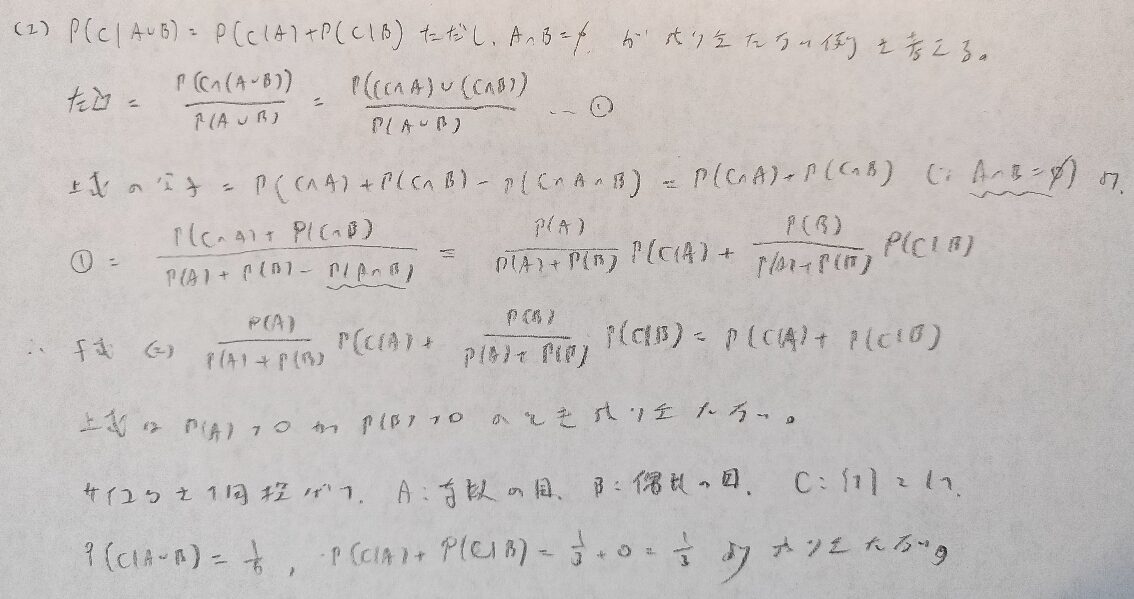 (2) P(C|A∪B) = P(C|A)+P(C|B) ただし、A∩B=φ. が成り立たない例を考える。
左辺 = P(C∩(A∪B))/P(A∪B) = P((C∩A)∪(C∩B))/P(A∪B) … ①
上式の分子 = P(C∩A)+P(C∩B)-P(C∩A∩B) = P(C∩A)+P(C∩B) (∵ A∩B=φ) より.
① = (P(C∩A)+P(C∩B))/(P(A)+P(B)-P(A∩B)) = P(A)/(P(A)+P(B)) P(C|A) + P(B)/(P(A)+P(B)) P(C|B)
∴ 与式 ⇔ P(A)/(P(A)+P(B)) P(C|A) + P(B)/(P(A)+P(B)) P(C|B) = P(C|A)+P(C|B)
上式は P(A)>0 かつ P(B)>0 のとき成り立たない。
サイコロを1回投げて. A:奇数の目. B:偶数の目. C:{1}として.
P(C|A∪B) = 1/6, P(C|A)+P(C|B) = 1/3+0 = 1/3 より成り立たない。